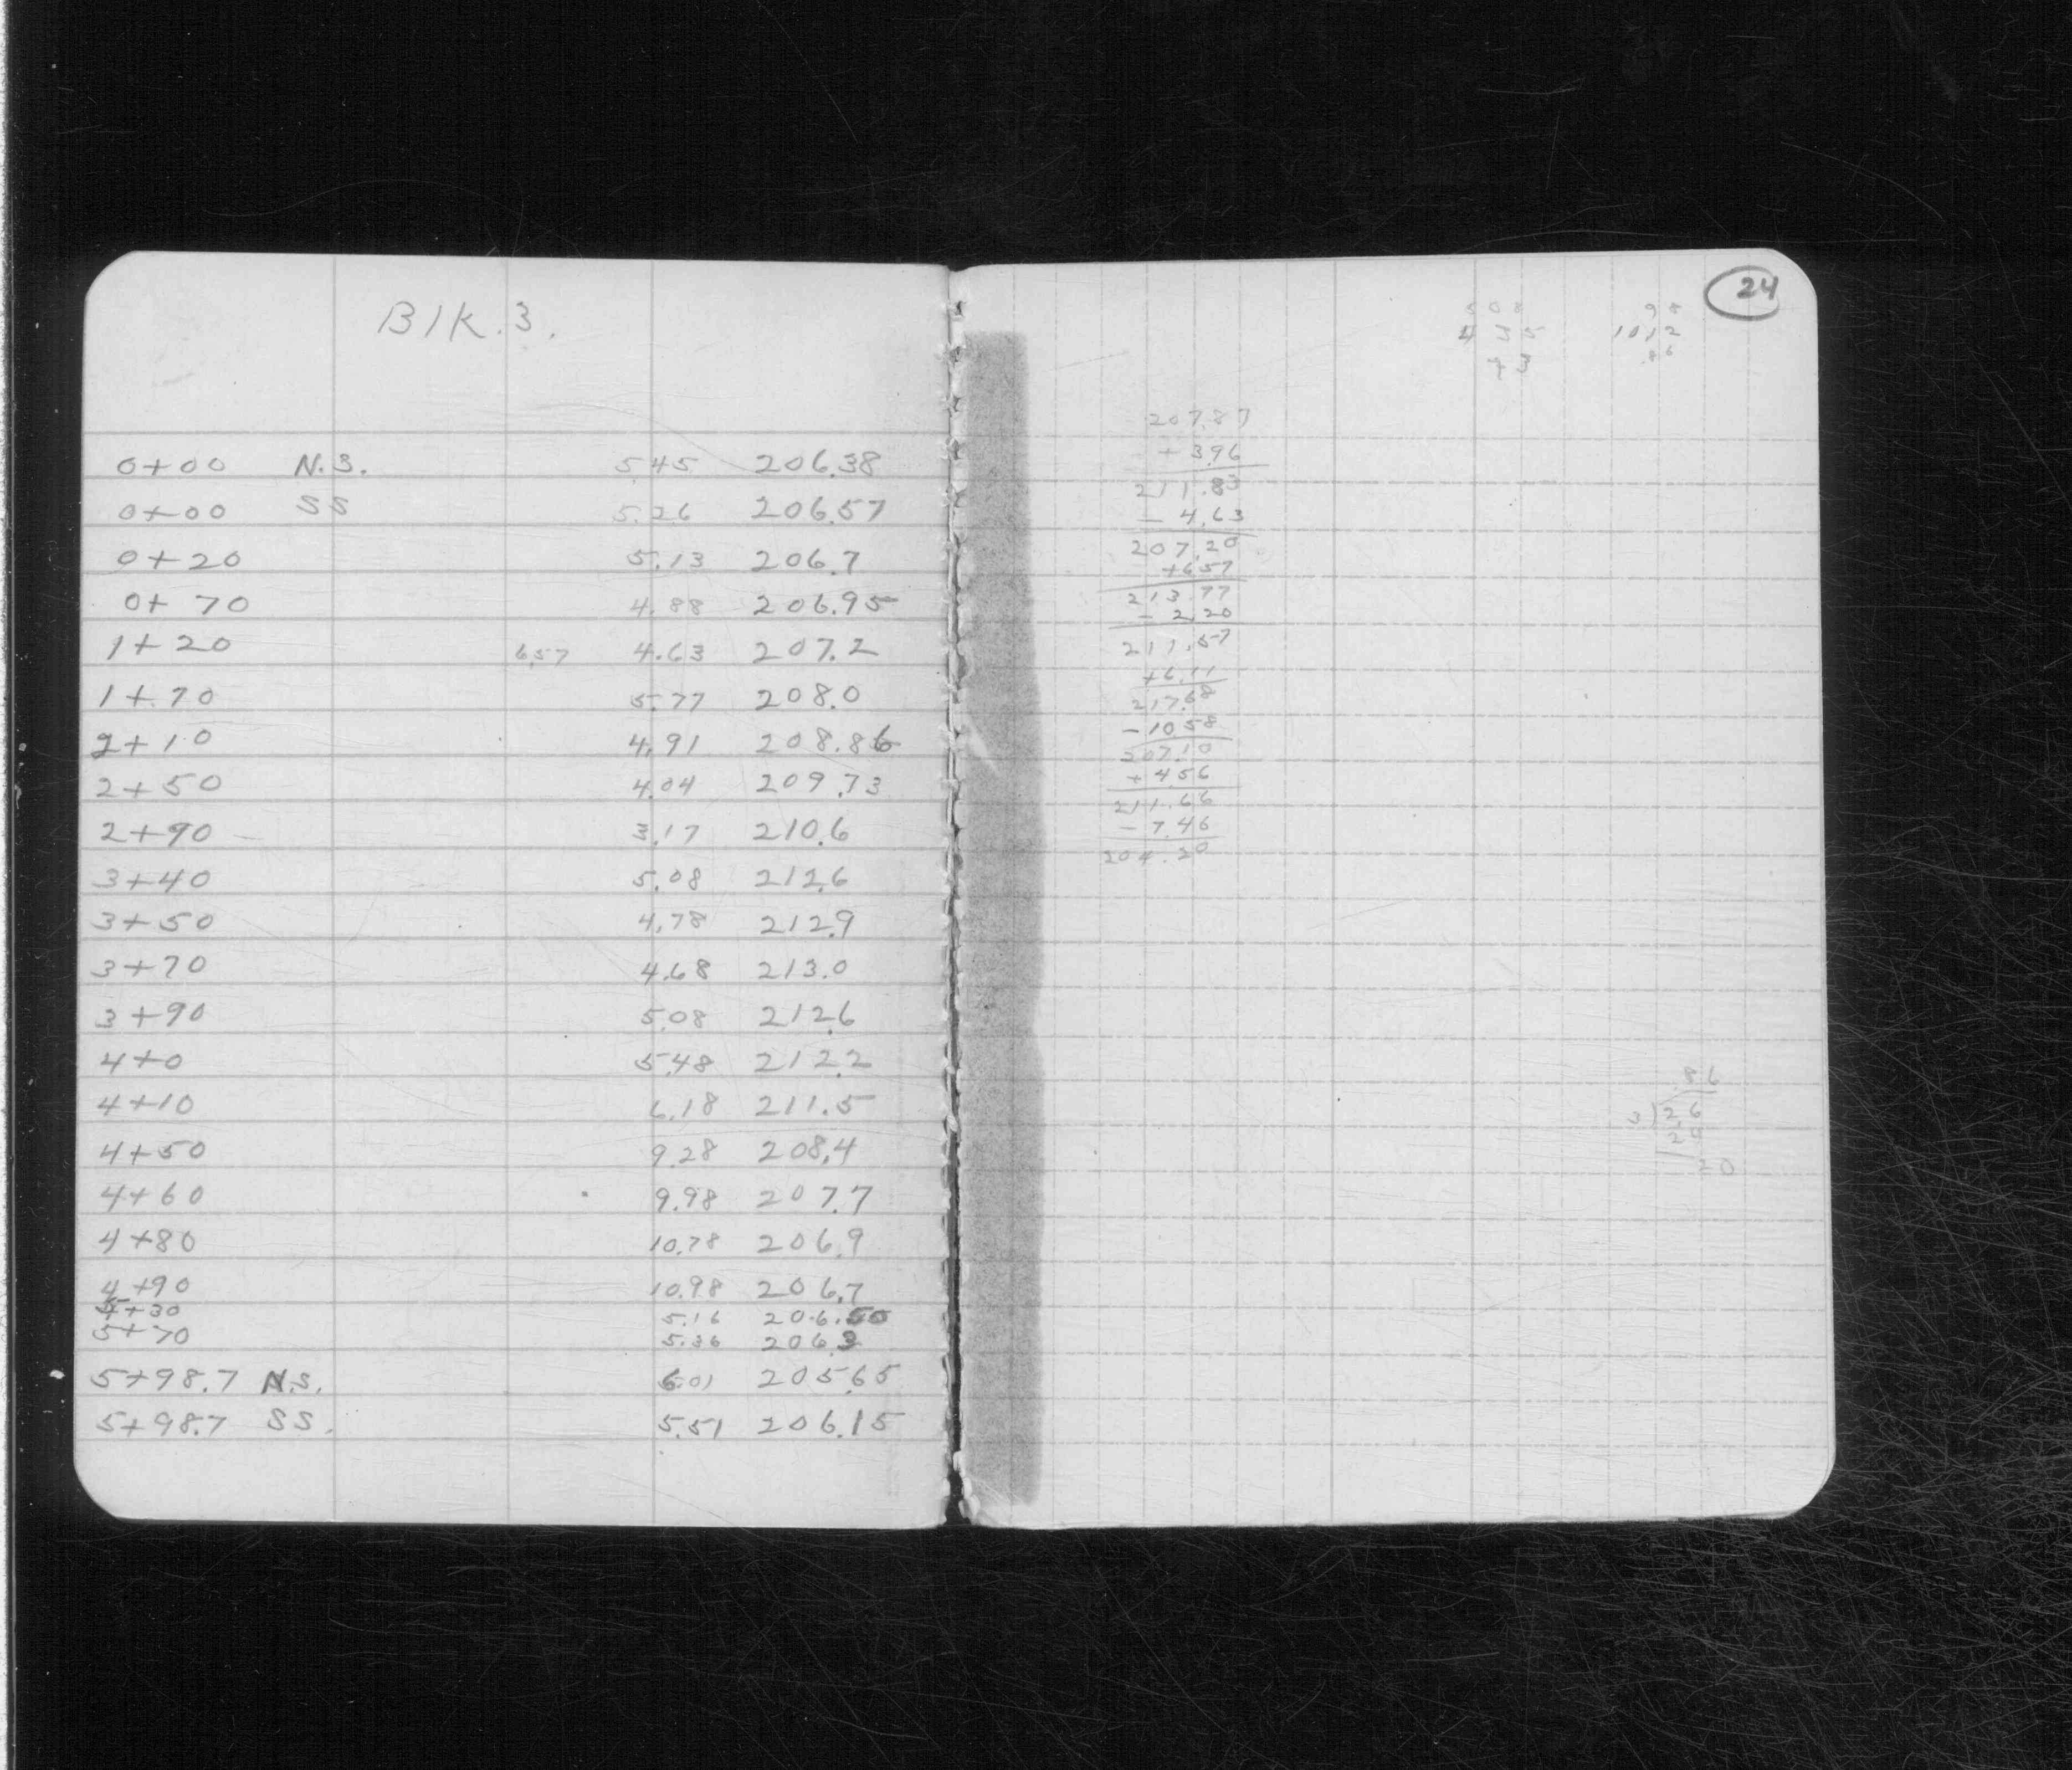 Blk.3.
0+00 N.S. 5.45 206.38
0+00 SS 5.26 206.57
0+20 5.13 206.7
0+70 4.88 206.95
1+20 6.57 4.63 207.2
1+70 5.77 208.0
2+10 4.91 208.86
2+50 4.04 209.73
2+90 3.17 210.6
3+40 5.08 212.6
3+50 4.78 212.9
3+70 4.68 213.0
3+90 5.08 212.6
4+0 5.48 212.2
4+10 6.18 211.5
4+50 9.28 208.4
4+60 9.98 207.7
4+80 10.78 206.9
4+90 10.98 206.7
5+30 5.16 206.50
5+70 5.36 206.3
5+98.7 N.S. 6.01 205.65
5+98.7 SS. 5.51 206.15
24
10.12
207.87
+ 3.96
211.83
- 4.63
207.20
+6.57
213.77
- 2.20
211.57
+6.11
217.68
- 10.58
207.10
+ 4.56
211.66
- 7.46
204.20
.86
3)2.6
24
20